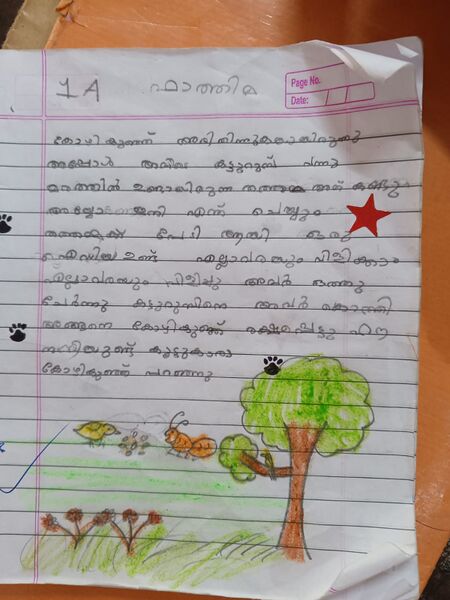 1A ഫാത്തിമ
Page No.
Date:
കോഴികുഞ്ഞ് അരിതിന്നുകയായിരുന്നു
അപ്പോൾ അവിടെ കട്ടുറുമ്പ് വന്നു
മരത്തിൽ ഉണ്ടായിരുന്ന തത്തമ്മ അത് കണ്ടു
ഇനി എന്ത് ചെയ്യും
തത്തമ്മക്ക് പേടി ആയി ഒരു
ഐഡിയ ഉണ്ട് എല്ലാവരെയും വിളിക്കാം
എല്ലാവരെയും വിളിച്ചു അവർ വന്നു
ചേർന്നു കട്ടുറുമ്പിനെ അവർ കൊന്നു
അങ്ങനെ കോഴികുഞ്ഞ് രക്ഷപ്പെട്ടു
നന്ദിയുണ്ട് കൂട്ടുകാരെ
കോഴികുഞ്ഞ് പറഞ്ഞു